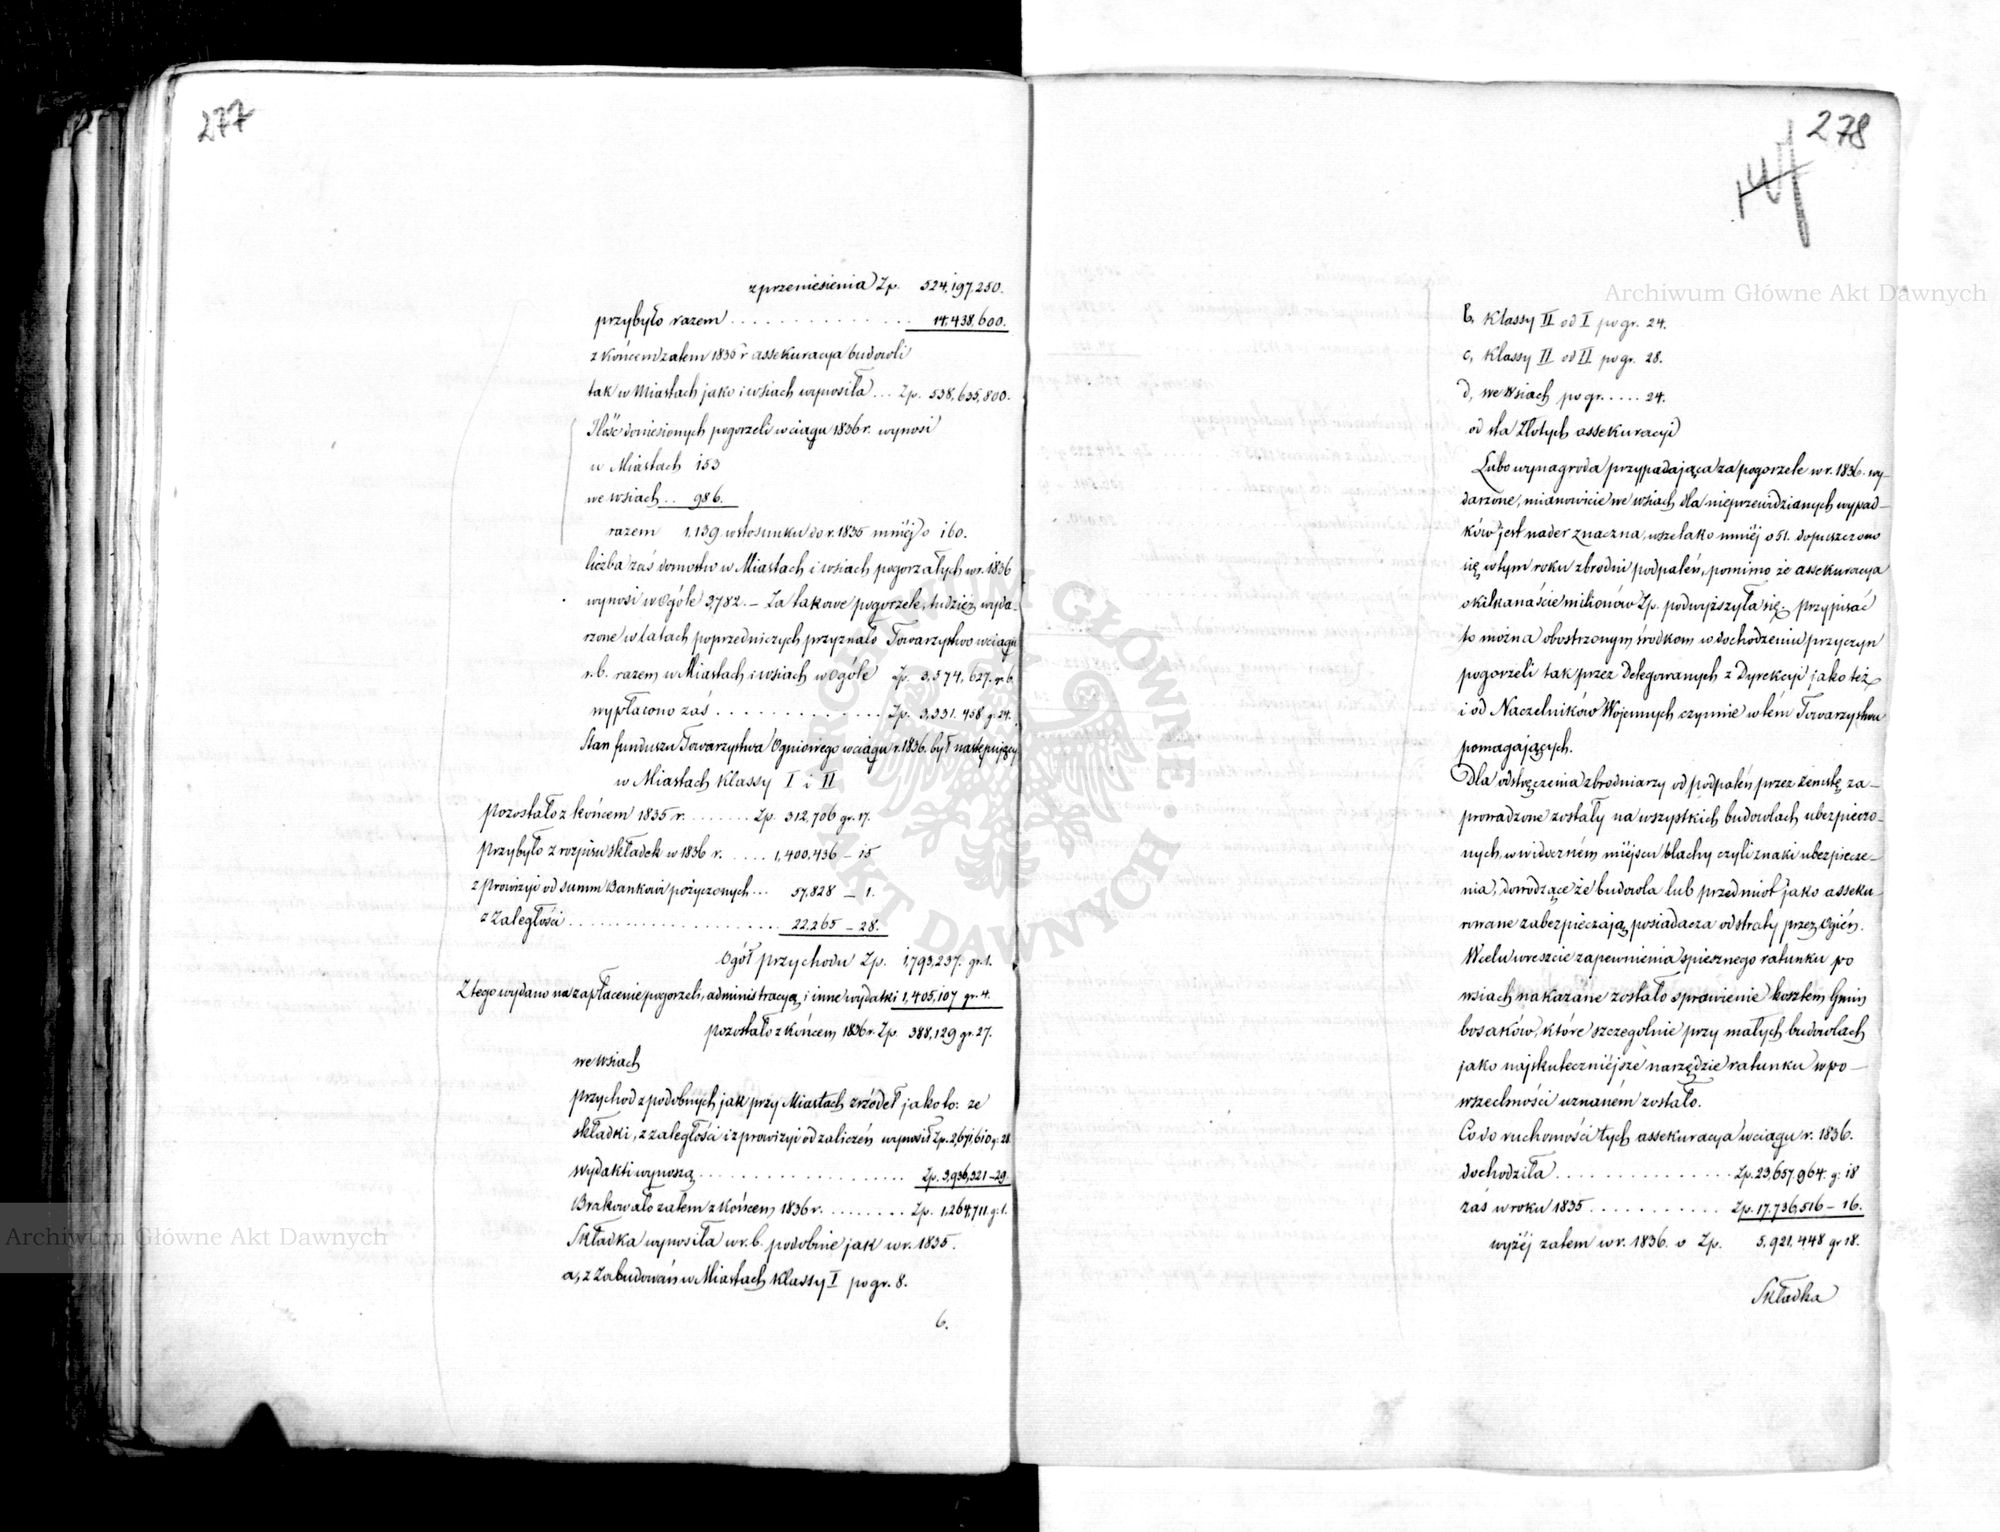 277
z przeniesienia Zp. 524,197,250.
przybyło razem . . . . . . . . . . . . . . 14,438,600.
z końcem zatem 1835 r assekuracya budowli
tak w Miastach jako i wsiach wynosiła ... Zp. 538,635,800.
Ilość doniesionych pogorzeli w ciągu 1836 r. wynosi
w Miastach 153
we wsiach .. 986.
razem 1,139. w stosunku do r. 1835 mniéj o 160.
liczba zaś domostw w Miastach i wsiach pogorzałych w r. 1836
wynosi w ogóle 3,782. – Za takowe pogorzele, tudzież wyda-
rzone w latach poprzedniczych przyznało Towarzystwo w ciągu
r. b. razem w Miastach i wsiach w ogóle Zp. 3,574,627. g. 6.
wypłacono zaś . . . . . . . . . . . . . . Zp. 3,331,458 g. 24.
Stan funduszu Towarzystwa Ogniowego w ciągu r. 1836. był następujący
w Miastach Klassy I i II
Pozostało z końcem 1835 r. . . . . . . . Zp. 312,706 gr. 17.
Przybyło z rozpisu składek w 1836 r. . . . . . 1,400,436 – 15
z Prowizyi od summ Bankowi pożyczonych ... 57,828 – 1.
z Zaległości . . . . . . . . . . . . . . . . . . . . 22,265 – 28.
Ogół przychodu Zp. 1,793,237. gr. 1.
Z tego wydano na zapłacenie pogorzeli, administracyą i inne wydatki 1,405,107 gr. 4.
pozostało z końcem 1836 r. Zp. 388,129 gr. 27.
we wsiach
przychod z podobnych jak przy Miastach zrzódeł jako to: ze
składki, z zaległości i z prowizyi od zaliczeń wynosił Zp. 2,671,610 g. 28.
wydakti wynoszą . . . . . . . . . . . . . . . . . . . . Zp. 3,936,321 – 29.
Brakowało zatem z końcem 1836 r. . . . . . . . . Zp. 1,264,711 g. 1.
Składka wynosiła w r. b. podobnie jak w r. 1835.
a, z Zabudowań w Miastach Klassy I po gr. 8.
b.
278
b, Klassy II od I po gr. 24.
c, Klassy II od II po gr. 28.
d, we wsiach po gr. . . . . 24.
od sta Złotych assekuracyi
Lubo wynagroda przypadająca za pogorzele w r. 1836. wy-
darzone, mianowicie we wsiach dla nieprzewidzianych wypad-
ków jest nader znaczna, wszelako mniéj o 51. dopuszczono
się w tym roku zbrodni podpaleń, pomimo że assekuracya
o kilkanaście milionów Zp. podwyższyła się; przypisać
to można obostrzonym środkom w dochodzeniu przyczyn
pogorzeli tak przez Delegowanych z Dyrekcyi jako też
i od Naczelników Wojennych czynnie w tém Towarzystwu
pomagających.
Dla odstręczenia zbrodniarzy od podpaleń przez zemstę za-
prowadzone zostały na wszystkich budowlach ubezpieczo-
nych, w widoczném miejscu blachy czyli znaki ubezpiecze-
nia, dowodzące że budowla lub przedmiot jako asseku-
rowane zabezpieczają posiadacza od straty przez Ogień.
W celu wreszcie zapewnienia spiesznego ratunku po
wsiach nakazane zostało sprawienie kosztem Gmin
bosaków, które szczególnie przy małych budowlach
jako najskuteczniejsze narzędzie ratunku w po-
wszechności uznaném zostało.
Co do ruchomości tych assekuracya w ciągu r. 1836.
dochodziła . . . . . . . . . . . . . . . Zp. 23,657,964. g: 18
zaś w roku 1835 . . . . . . . . . . . Zp. 17,736,516 – 16.
wyżéj zatem w r. 1836. o Zp. 5,921,448 gr 18.
Składka
Archiwum Główne Akt Dawnych
Archiwum Główne Akt Dawnych
ARCHIWUM GŁÓWNE AKT DAWNYCH